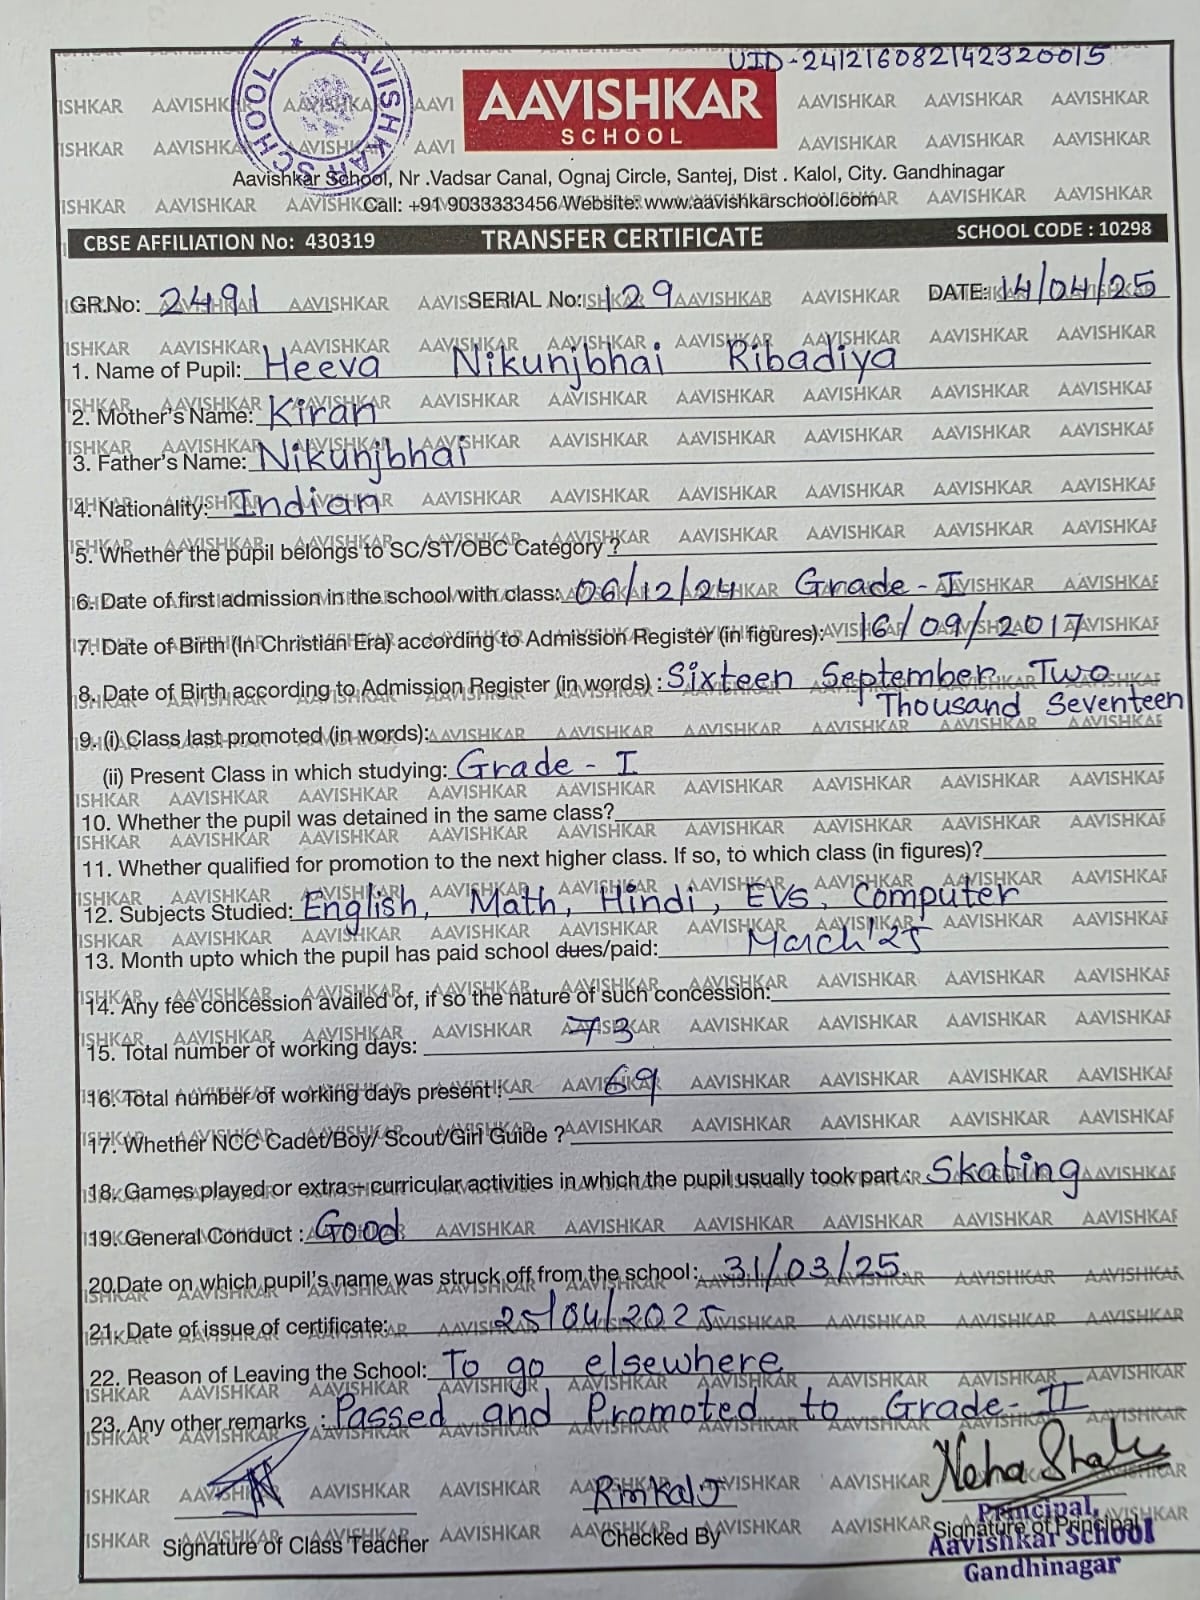 UID-241216082142320015
AAVISHKAR SCHOOL
AAVISHKAR
SCHOOL
Aavishkar School, Nr .Vadsar Canal, Ognaj Circle, Santej, Dist . Kalol, City. Gandhinagar
Call: +91 9033333456 Website: www.aavishkarschool.com
CBSE AFFILIATION No: 430319 TRANSFER CERTIFICATE SCHOOL CODE : 10298
GR.No: 2491 SERIAL No: 129 DATE: 14/04/25
1. Name of Pupil: Heeva Nikunjbhai Ribadiya
2. Mother's Name: Kiran
3. Father's Name: Nikunjbhai
4. Nationality: Indian
5. Whether the pupil belongs to SC/ST/OBC Category ?
6. Date of first admission in the school with class: 06/12/24 Grade - I
7. Date of Birth (In Christian Era) according to Admission Register (in figures): 16/09/2017
8. Date of Birth according to Admission Register (in words) : Sixteen September Two
Thousand Seventeen
9. (i) Class last promoted (in words):
(ii) Present Class in which studying: Grade - I
10. Whether the pupil was detained in the same class?
11. Whether qualified for promotion to the next higher class. If so, to which class (in figures)?
12. Subjects Studied: English, Math, Hindi, EVS, Computer
13. Month upto which the pupil has paid school dues/paid: March'25
14. Any fee concession availed of, if so the nature of such concession:
15. Total number of working days: 73
16. Total number of working days present : 69
17. Whether NCC Cadet/Boy/ Scout/Girl Guide ?
18. Games played or extra – curricular activities in which the pupil usually took part : Skating
19. General Conduct : Good
20.Date on which pupil's name was struck off from the school: 31/03/25
21. Date of issue of certificate: 25/04/2025
22. Reason of Leaving the School: To go elsewhere
23. Any other remarks : Passed and Promoted to Grade- II
Rinkal J Neha Shah
Signature of Class Teacher Checked By Signature of Principal
Principal,
Aavishkar School
Gandhinagar